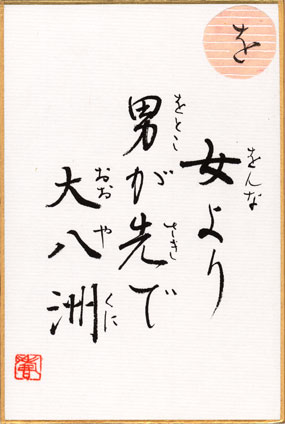 を
をんな
女より
をとこ さき
男が先で
おお や くに
大八洲